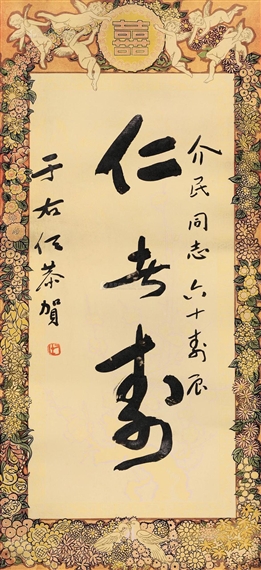 囍
介民同志六十寿辰
仁者寿
于右任恭賀